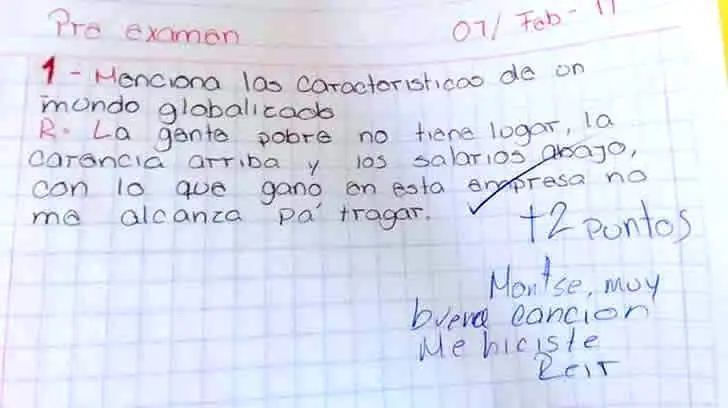 Pre examen 07/Feb-17
1 - Menciona las caracteristicas de un
mundo globalizado
R. La gente pobre no tiene lugar, la
carencia arriba y los salarios abajo,
con lo que gano en esta empresa no
me alcanza pa' tragar.
+2 puntos
Montse, muy
buena cancion
Me hiciste
Reir